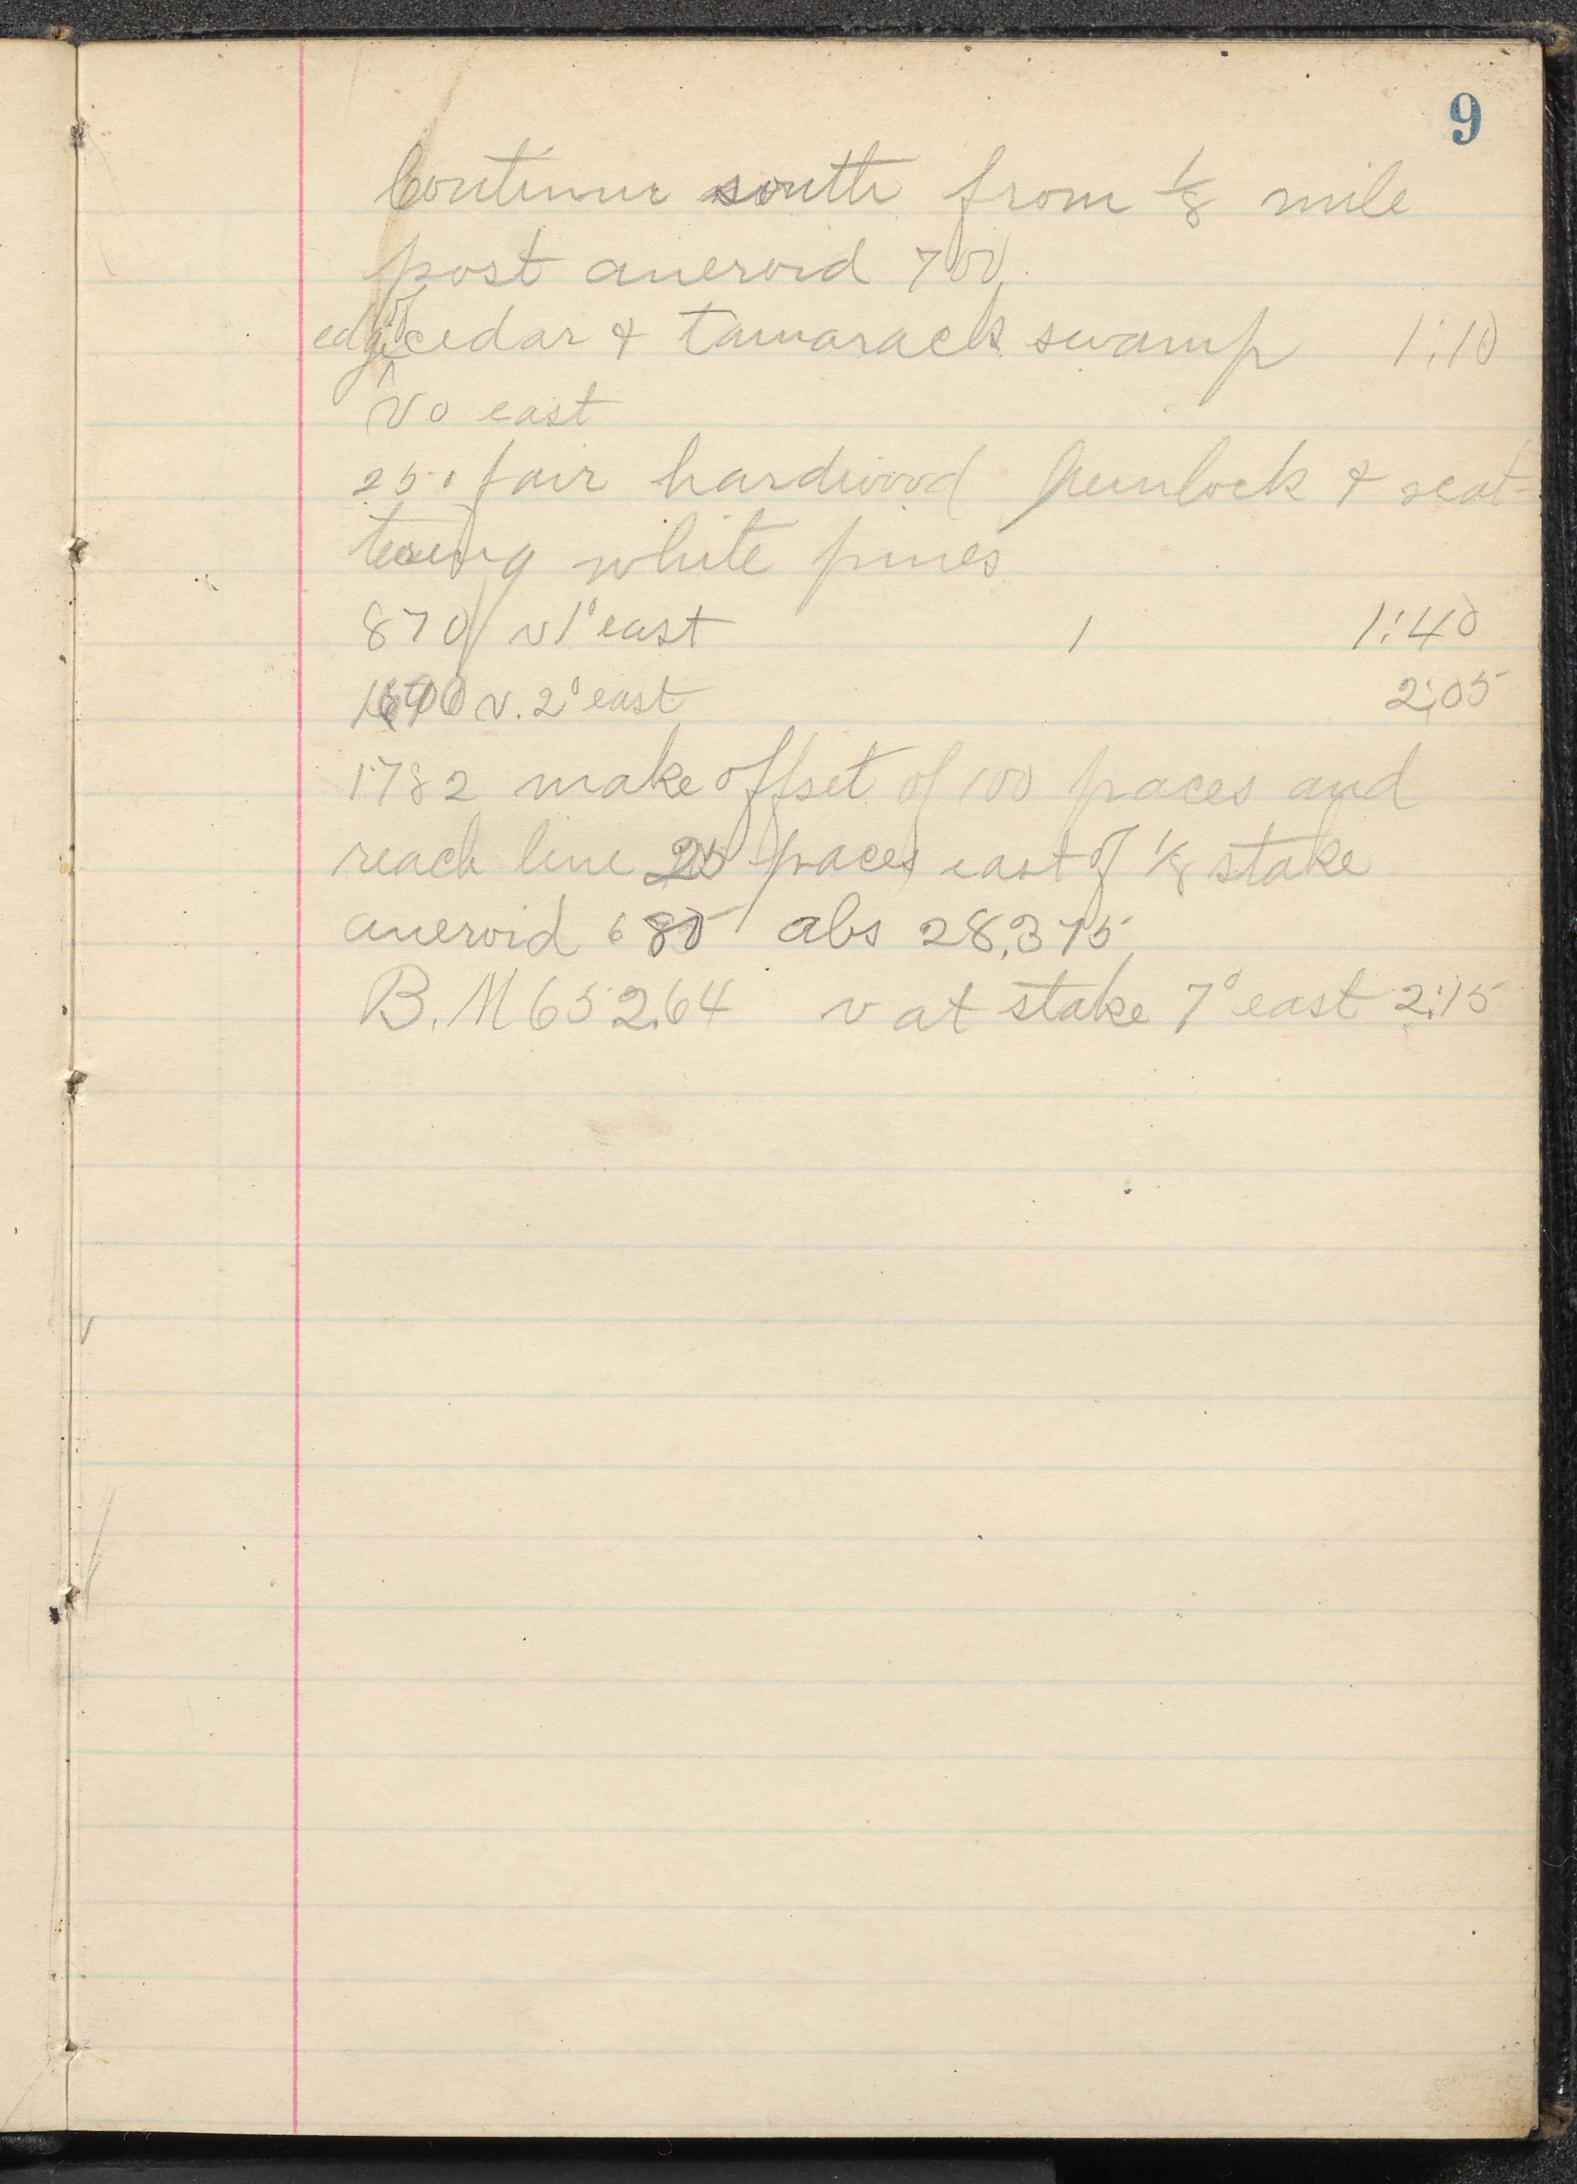 9
Continue south from 1/8 mile
post aneroid 700.
edge of cedar & tamarack swamp 1:10
V 0 east
250 fair hardwood hemlock & scat-
tering white pines
870 v 1° east 1 1:40
v. 2° east 2:05
1782 make offset of 100 paces and
reach line 25 paces east of 1/8 stake
aneroid 680 abs 28.375
B.M 652.64 v at stake 7° east 2:15